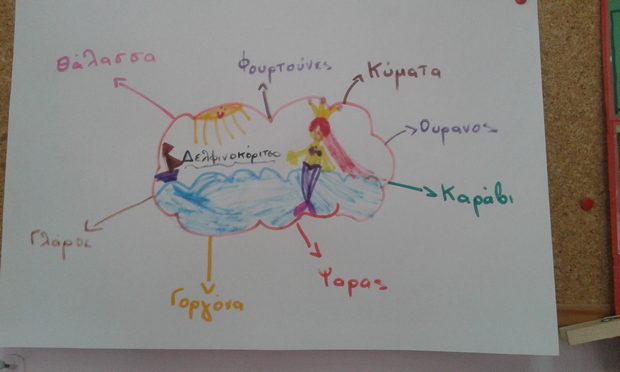 Θάλασσα
Φουρτούνες
Κύματα
Ουρανος
Δελφινοκόριτσο
Καράβι
Γλάρος
Γοργόνα
Ψαρας